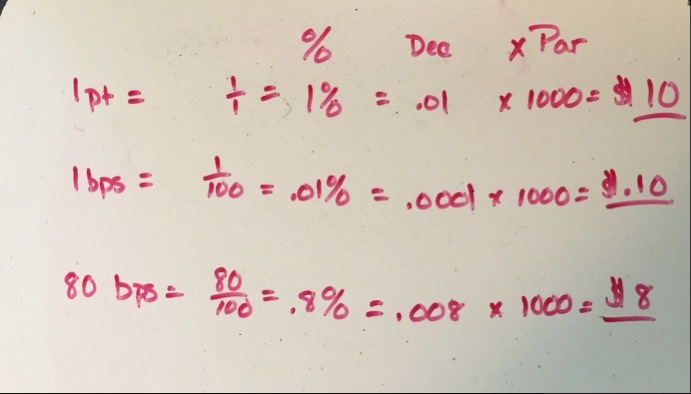 % Dec x Par
1pt = 1/1 = 1% = .01 x 1000 = $10
1bps = 1/100 = .01% = .0001 x 1000 = $.10
80 bps = 80/100 = .8% = .008 x 1000 = $8